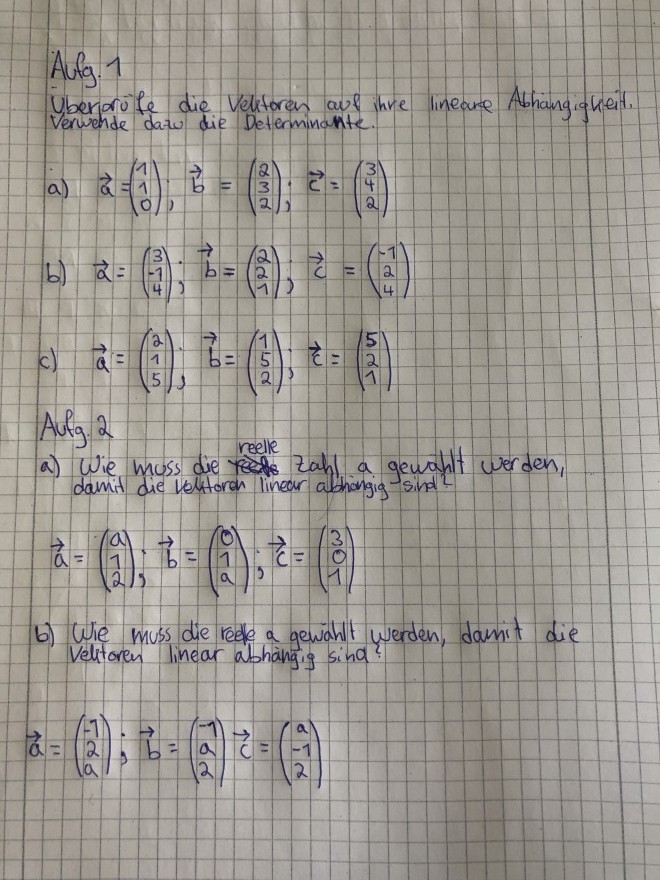 Aufg. 1
Überprüfe die Vektoren auf ihre lineare Abhängigkeit.
Verwende dazu die Determinante.
a) a⃗ = (1 1 0); b⃗ = (2 3 2); c⃗ = (3 4 2)
b) a⃗ = (3 -1 4); b⃗ = (2 2 1); c⃗ = (-1 2 4)
c) a⃗ = (2 1 5); b⃗ = (1 5 2); c⃗ = (5 2 1)
Aufg. 2
a) Wie muss die reelle Zahl a gewählt werden,
damit die Vektoren linear abhängig sind?
a⃗ = (a 1 2); b⃗ = (0 1 a); c⃗ = (3 0 1)
b) Wie muss die reelle a gewählt werden, damit die
Vektoren linear abhängig sind?
a⃗ = (-1 2 a); b⃗ = (-1 a 2) c⃗ = (a -1 2)